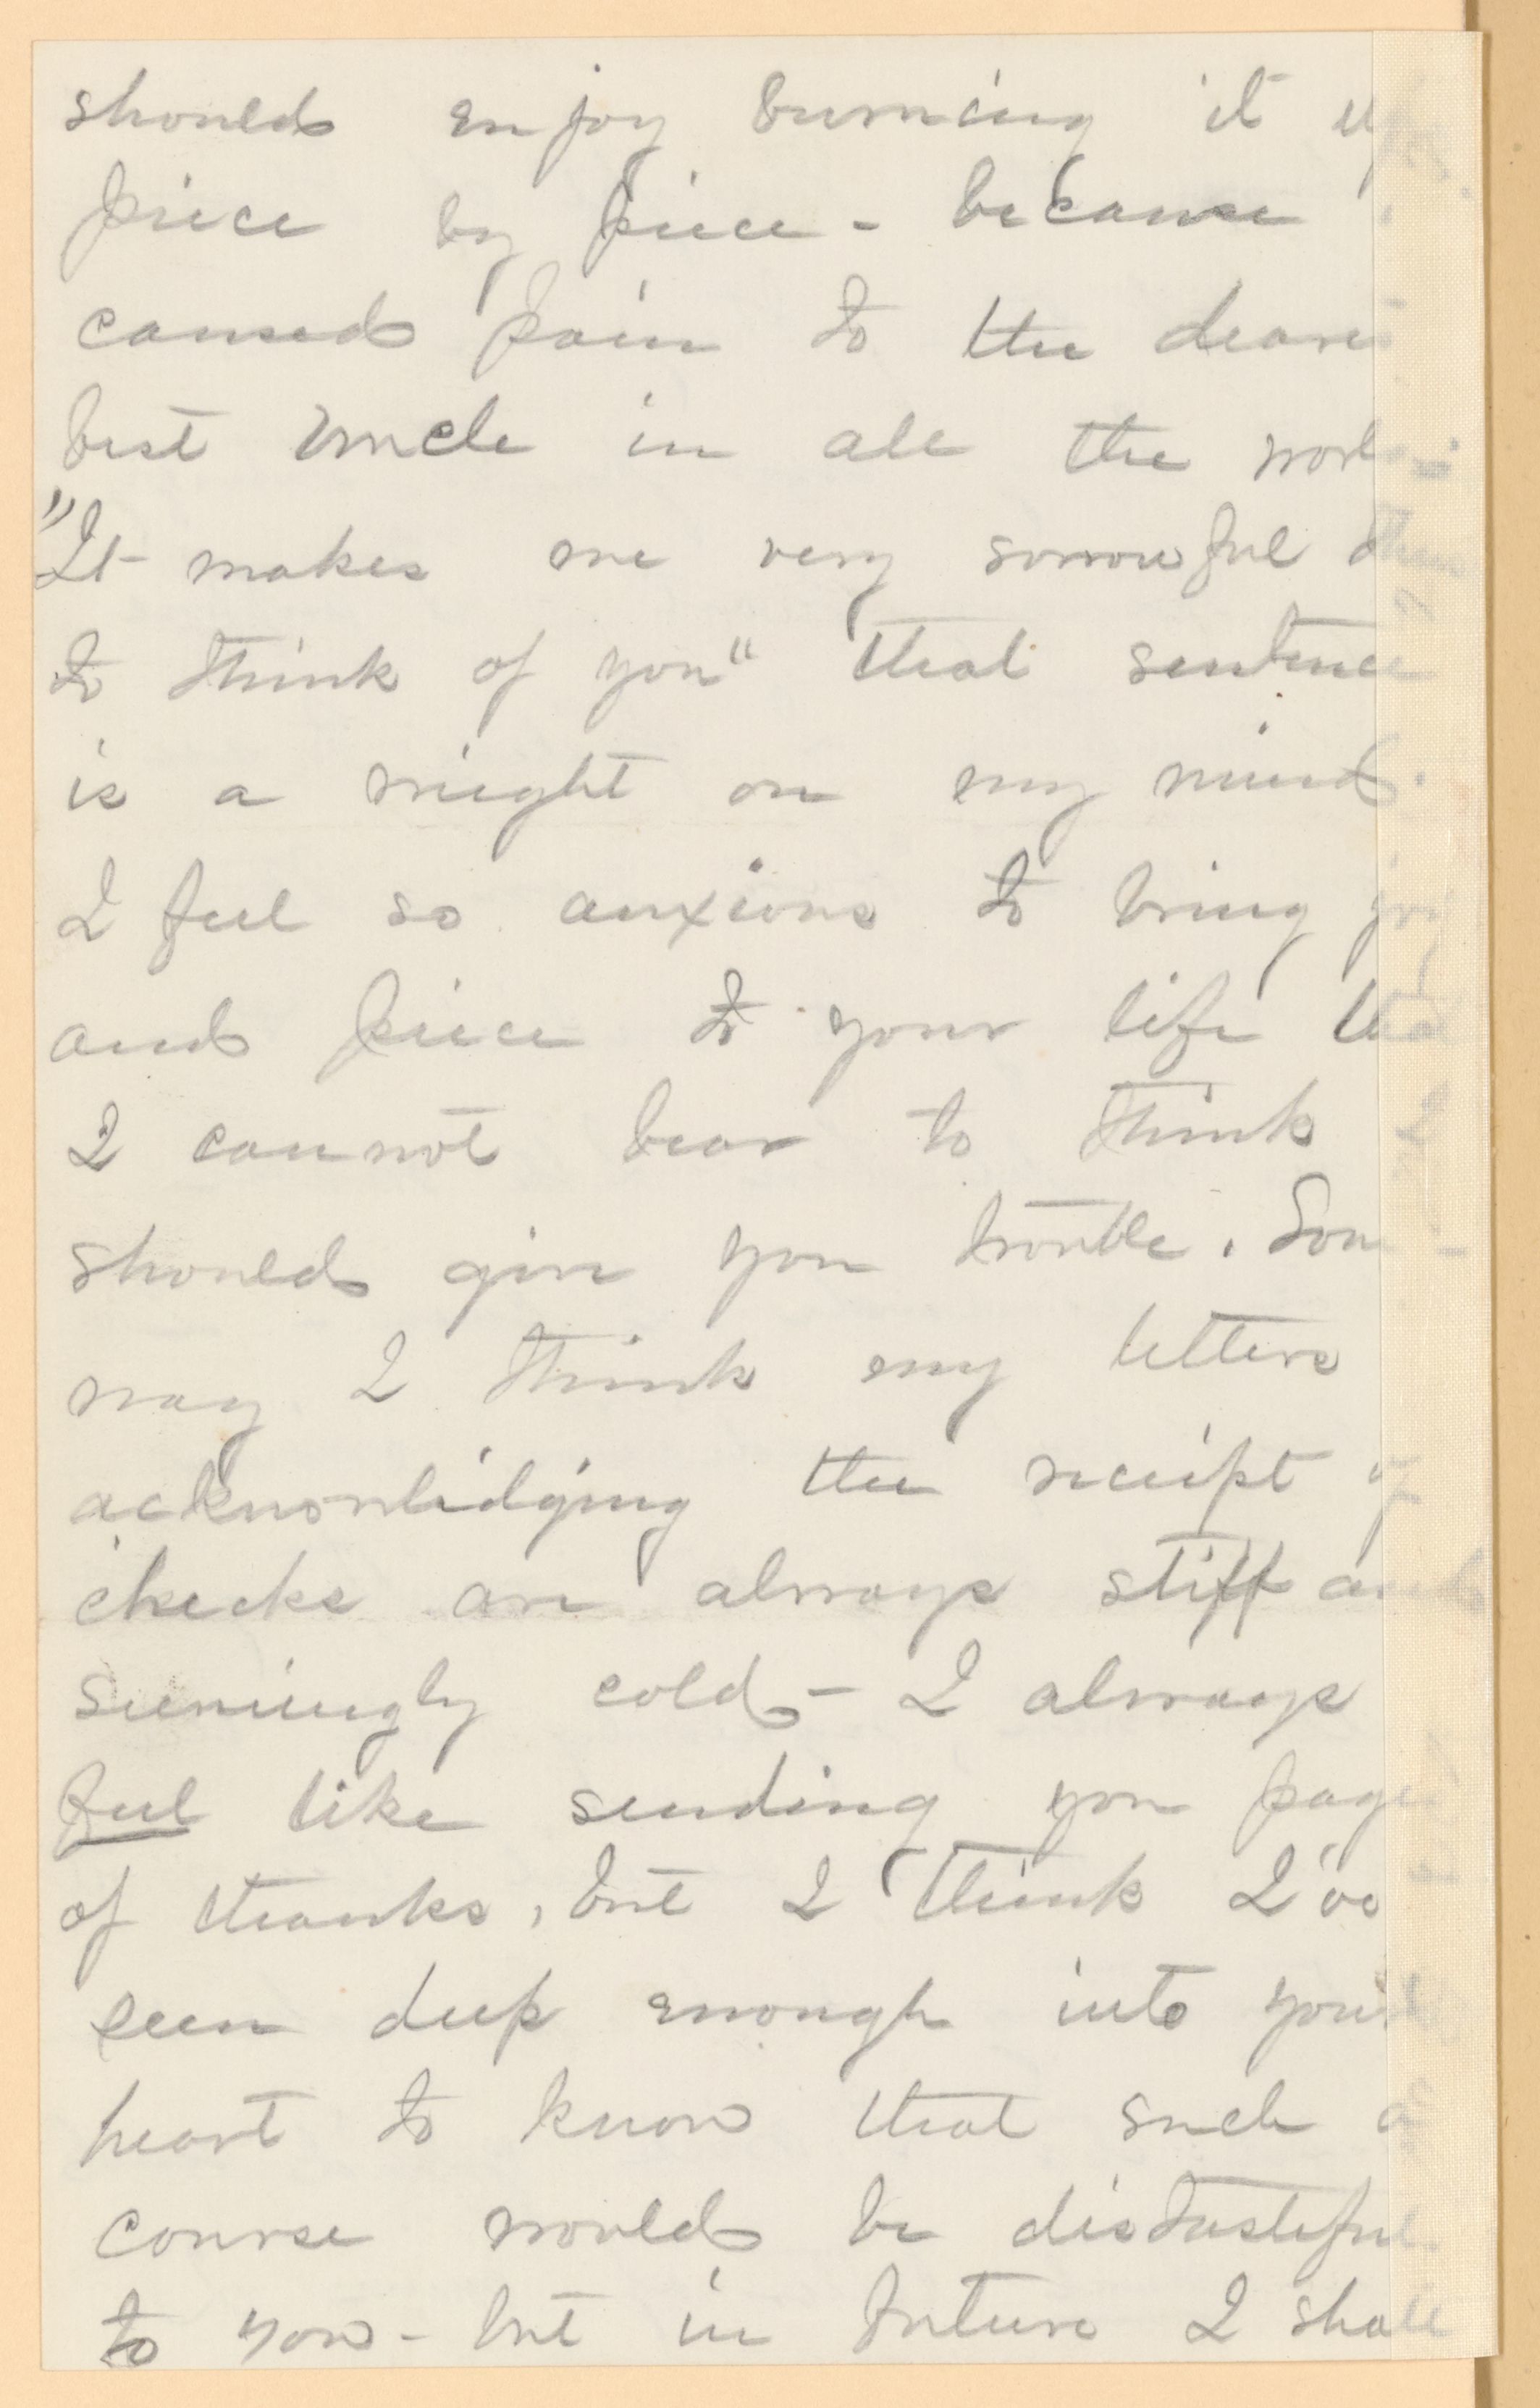 should enjoy burning it up
piece by piece - because
caused pain to the deares
best Uncle in all the worl
"It makes me very sorrowful
to think of you" that sentence
is a weight on my mind.
I feel so anxious to bring joy
and peace to your life that
I cannot bear to think
should give you trouble. Som
way I think my letters
acknowledging the receipt of
checks are always stiff an
seemingly cold - I always
feel like sending you pages
of thanks, but I think I've
seen deep enough into your
heart to know that such a
course would be distasteful
to you - but in future I shall